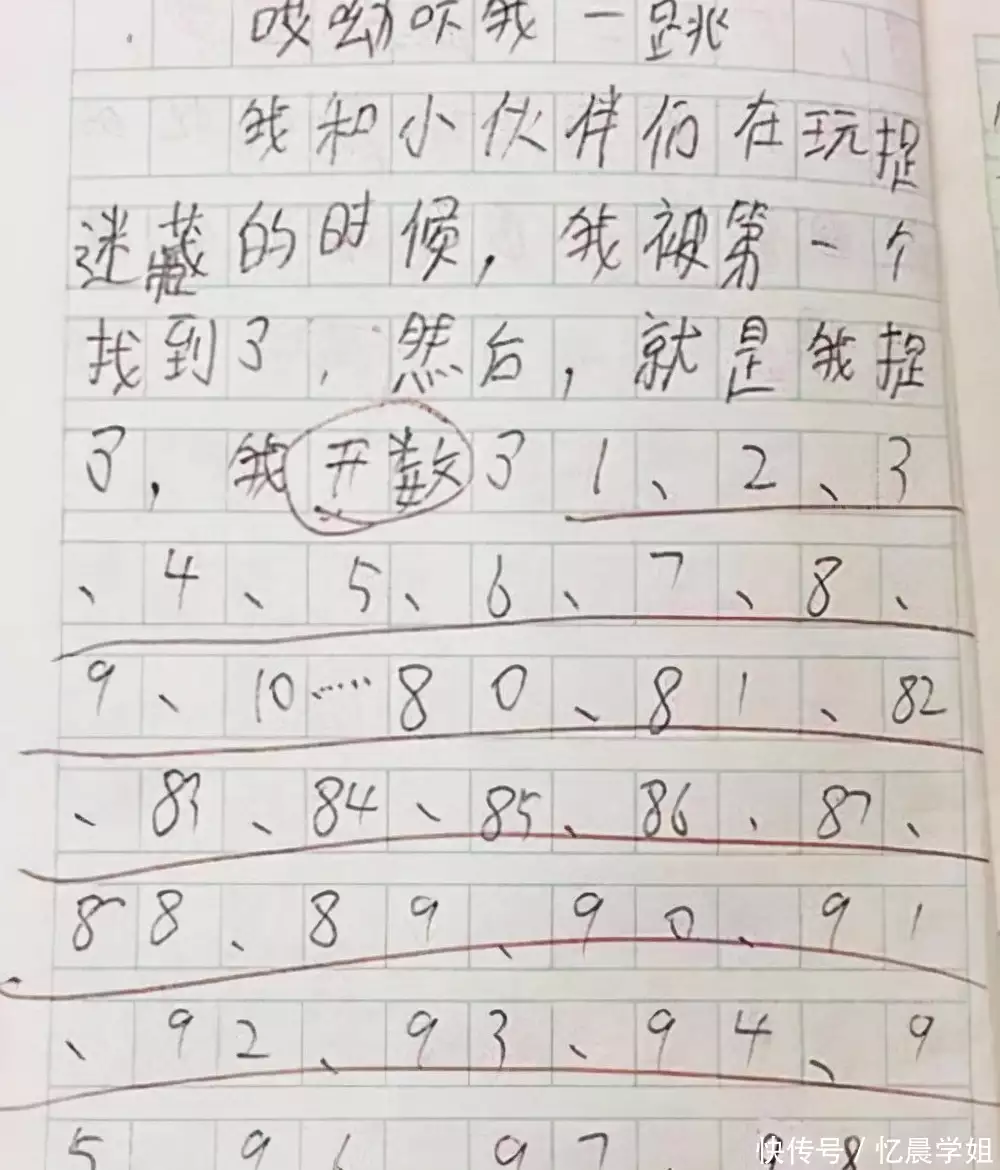 哎呦吓我一跳
我和小伙伴们在玩捉
迷藏的时候，我被第一个
找到了，然后，就是我捉
了，我开数了1、2、3
、4、5、6、7、8、
9、10……80、81、82
、83、84、85、86、87、
88、89、90、91
、92、93、94、9
5 96 97 98
快传号／忆晨学姐